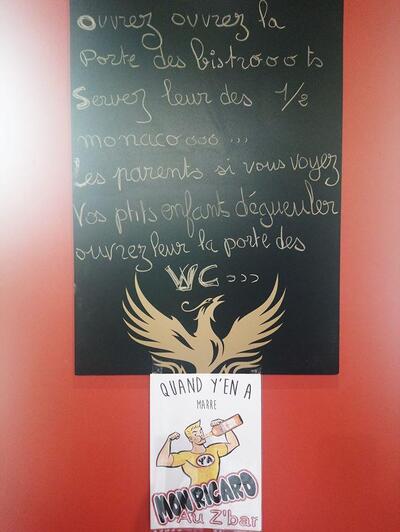 Ouvrez ouvrez la
Porte des bistroooots
Servez leur des 1/2
monacoooo ...
Les parents si vous voyez
Vos ptits enfants dégueuler
ouvrez leur la porte des
WC ...
QUAND Y'EN A
MARRE
Y'A
MON RICARD
Au Z'bar